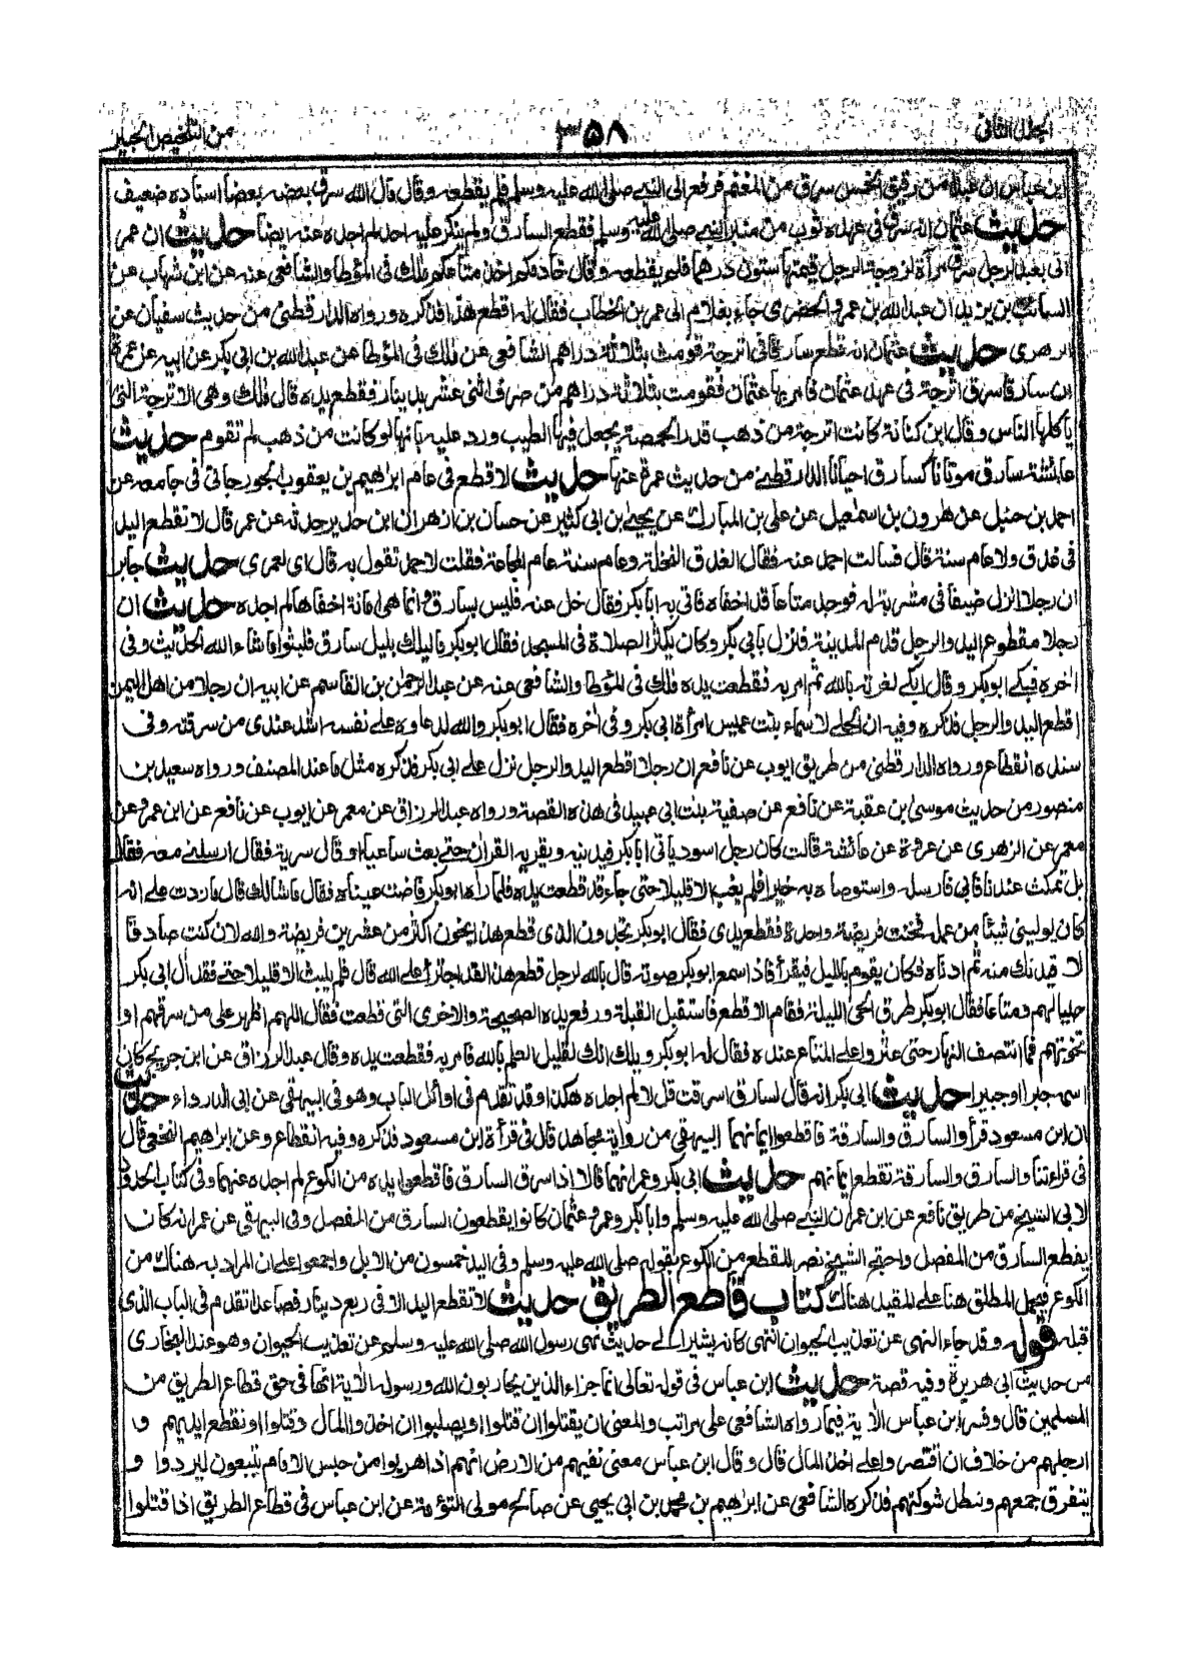 الجلد الثانى
٣٥٨
من التلخيص الحبير
ابن عباس ان عبدا من رقيق الخمس سرق من المغنم فرفع الى النبي صلى الله عليه وسلم فلم يقطعه وقال مال الله سرق بعضه بعضا اسناده ضعيف
حديث عثمان انه سرق فى عهده ثوب من منبر النبي صلى الله عليه وسلم فقطع السارق ولم ينكر عليه احد لم اجده عنه ايضا حديث ان عمر
اتى بعبد لرجل سرق مرآة لزوجة الرجل قيمتها ستون درهما فلم يقطعه وقال خادمكم اخذ متاعكم مالك فى المؤطا والشافعى عنه عن ابن شهاب عن
السائب بن يزيد ان عبد الله بن عمرو الحضرمى جاء بغلام الى عمر بن الخطاب فقال له اقطع هذا فذكره ورواه الدارقطنى من حديث سفيان عن
الزهرى حديث عثمان انه قطع سارقا فى اترجة قومت بثلاثة دراهم الشافعى عن مالك فى المؤطا عن عبد الله بن ابى بكر عن ابيه عن عمرة
ان سارقا سرق اترجة فى عهد عثمان فامر بها عثمان فقومت بثلاثة دراهم من صرف اثنى عشر بدينار فقطع يده قال مالك وهى الاترجة التى
يأكلها الناس وقال ابن كنانة كانت اترجة من ذهب قدر الحمصة يجعل فيها الطيب ورد عليه بانها لو كانت من ذهب لم تقوم حديث
عائشة سارق موتانا كسارق احيانا الدارقطني من حديث عمرة عنها حديث لا قطع فى عام ابراهيم بن يعقوب الجورجانى فى جامعه عن
احمد بن حنبل عن هارون بن اسمعيل عن على بن المبارك عن يحيى بن ابى كثير عن حسان بن ازهر ان ابن حدير حدثه عن عمر قال لا تقطع اليد
فى عذق ولا عام سنة قال فسالت احمد عنه فقال العذق النخلة وعام سنة عام المجاعة فقلت لاحمد تقول به قال اى لعمرى حديث جابر
ان رجلا نزل ضيفا فى مشربة له فوجد متاعا قد اخفاه فاتى به ابا بكر فقال خل عنه فليس بسارق وانما هى امانة اخفاها لم اجده حديث ان
رجلا مقطوع اليد والرجل قدم المدينة فنزل بابى بكر وكان يكثر الصلاة فى المسجد فقال ابو بكر ما ليلك بليل سارق فلبثوا ما شاء الله الحديث وفى
اخره فبكى ابو بكر وقال ابكى لغرته بالله ثم امر به فقطعت يده مالك فى المؤطا والشافعى عنه عن عبد الرحمن بن القاسم عن ابيه ان رجلا من اهل اليمن
اقطع اليد والرجل فذكره وفيه ان الحلى لاسماء بنت عميس امرأة ابى بكر وفى اخره فقال ابو بكر والله لدعاؤه على نفسه اشد عندى من سرقته وفى
سنده انقطاع ورواه الدارقطنى من طريق ايوب عن نافع ان رجلا اقطع اليد والرجل نزل على ابى بكر فذكره مثل ما عند المصنف ورواه سعيد بن
منصور من حديث موسى بن عقبة عن نافع عن صفية بنت ابى عبيد فى هذه القصة ورواه عبد الرزاق عن معمر عن ايوب عن نافع عن ابن عمر وعن
معمر عن الزهرى عن عروة عن عائشة قالت كان رجل اسود ياتى ابا بكر فيدنيه ويقريه القرآن حتى بعث ساعيا او قال سرية فقال ارسلنى معه فقال
بل تمكث عندنا فابى فارسله واستوصاه به خيرا فلم يغب الا قليلا حتى جاء قد قطعت يده فلما رآه ابو بكر فاضت عيناه فقال ما شانك قال ما زدت على انه
كان يولينى شيئا من عمله فخنت فريضة واحدة فقطع يدى فقال ابو بكر تجدون الذى قطع هذا يخون اكثر من عشرين فريضة والله لان كنت صادقا
لاقيدنك منه ثم ادناه فكان يقوم بالليل فيقرأ فاذا سمع ابو بكر صوته قال بالله لرجل قطع هذا لقد اجترأ على الله قال فلم يلبث الا قليلا حتى فقد آل ابى بكر
حليا لهم ومتاعا فقال ابو بكر طرق الحى الليلة فقام الاقطع فاستقبل القبلة ورفع يده الصحيحة والاخرى التى قطعت فقال اللهم اظهر على من سرقهم او
نحو هذا فما انتصف النهار حتى عثروا على المتاع عنده فقال له ابو بكر ويلك انك لقليل العلم بالله فامر به فقطعت يده وقال عبد الرزاق عن ابن جريج كان
اسمه جبرا او جبيرا حديث ابى بكر انه قال لسارق اسرقت قل لا لم اجده هكذا وقد تقدم فى اوائل الباب وهو فى البيهقى عن ابى الدرداء حديث
ان ابن مسعود قرأ والسارق والسارقة فاقطعوا ايمانهما البيهقى من رواية مجاهد قال فى قرأة ابن مسعود فذكره وفيه انقطاع وعن ابراهيم النخعى قال
فى قراءتنا والسارق والسارقة تقطع ايمانهم حديث ابى بكر وعمر انهما قالا اذا سرق السارق فاقطعوا يده من الكوع لم اجده عنهما وفى كتاب الحدود
لابى الشيخ من طريق نافع عن ابن عمر ان النبي صلى الله عليه وسلم وابا بكر وعمر وعثمان كانوا يقطعون السارق من المفصل وفى البيهقى عن عمر انه كان
يقطع السارق من المفصل واحتج الشيخ نصر للقطع من الكوع بقوله صلى الله عليه وسلم وفى اليد خمسون من الابل واجمعوا على ان المراد به هناك من
الكوع فيحمل المطلق هنا على المقيد هناك كتاب قاطع الطريق حديث لا تقطع اليد الا فى ربع دينار فصاعدا تقدم فى الباب الذى
قبله قوله وقد جاء النهى عن تعذيب الحيوان انتهى كانه يشير الى حديث نهى رسول الله صلى الله عليه وسلم عن تعذيب الحيوان وهو عند البخارى
من حديث ابى هريرة وفيه قصة حديث ابن عباس فى قوله تعالى انما جزاء الذين يحاربون الله ورسوله الآية انها فى حق قطاع الطريق من
المسلمين قال وفسر ابن عباس الآية فيما رواه الشافعى على مراتب والمعنى ان يقتلوا ان قتلوا او يصلبوا ان اخذوا المال وقتلوا او تقطع ايديهم و
ارجلهم من خلاف ان اقتصروا على اخذ المال قال وقال ابن عباس معنى نفيهم من الارض انهم اذا هربوا من حبس الامام يتبعون ليردوا و
يتفرق جمعهم وتبطل شوكتهم فذكره الشافعى عن ابراهيم بن محمد بن ابى يحيى عن صالح مولى التوءمة عن ابن عباس فى قطاع الطريق اذا قتلوا